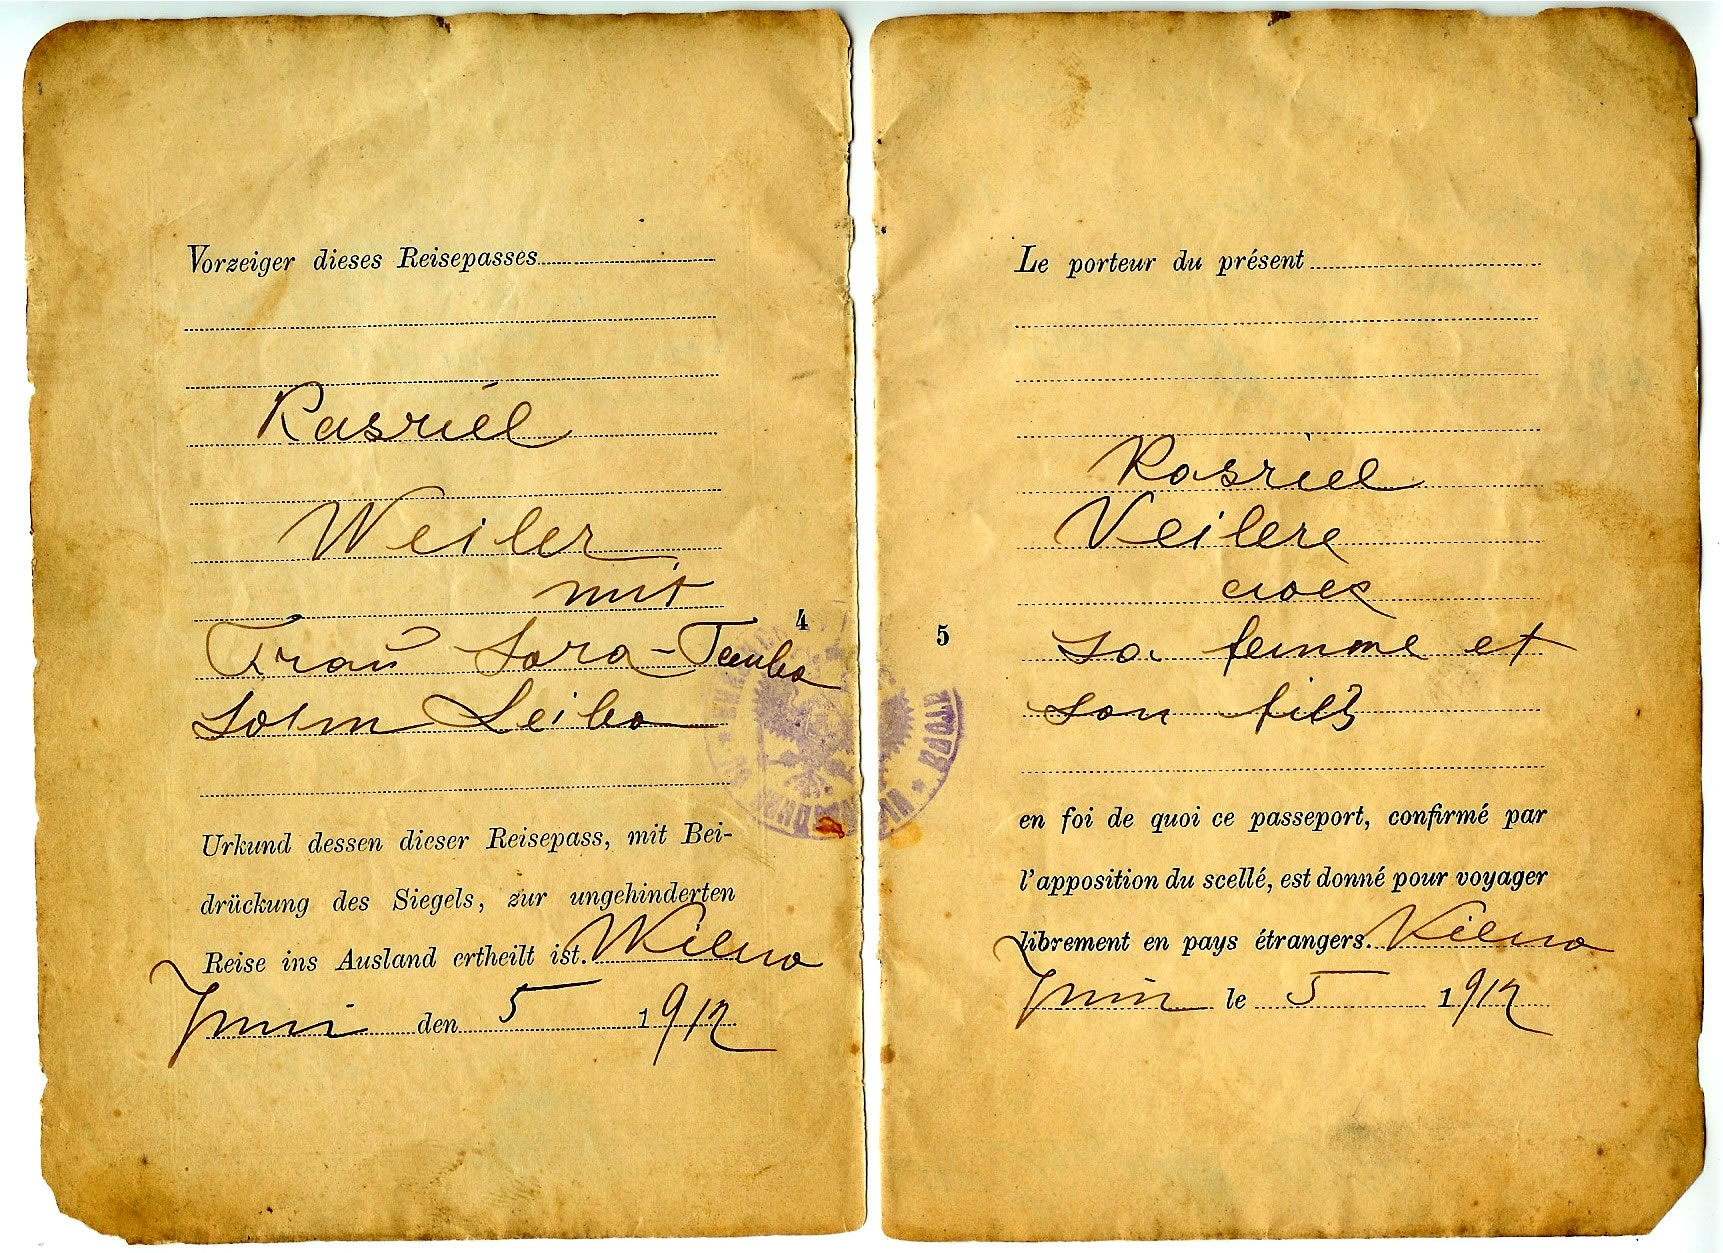 Vorzeiger dieses Reisepasses
Rasriel
Weiler
mit
Frau Sora-Tauba
Sohn Leiba
4
Urkund dessen dieser Reisepass, mit Bei-
drückung des Siegels, zur ungehinderten
Reise ins Ausland ertheilt ist. Wilna
Juni den 5 1912
Le porteur du présent
Rasriel
Veilere
5
sa femme et
son fils
en foi de quoi ce passeport, confirmé par
l'apposition du scellé, est donné pour voyager
librement en pays étrangers. Vilna
Juin le 5 1912